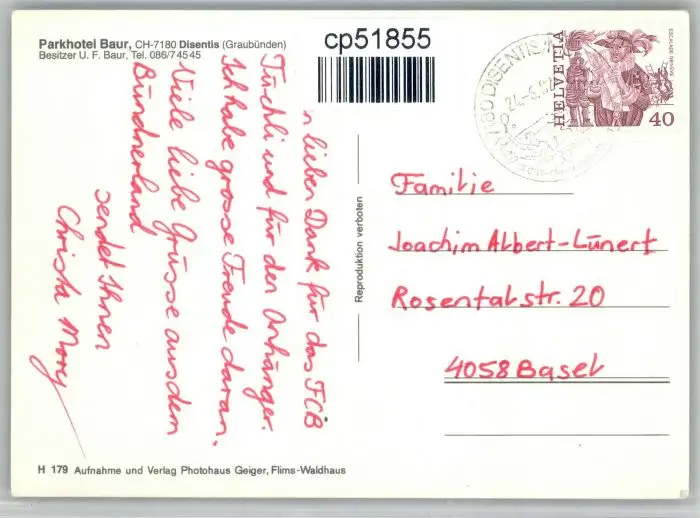 Parkhotel Baur, CH-7180 Disentis (Graubünden)
Besitzer U. F. Baur, Tel. 086/74545
cp51855
n lieben Dank für das FCB
Tüechli und für den Anhänger.
Ich habe grosse Freude daran.
Viele liebe Grüsse aus dem
Bündnerland
sendet Ihnen
Christa Mory
Reproduktion verboten
7180 DISENTIS/M
24.-6.
HELVETIA
ESCALADE GENEVE
40
Familie
Joachim Albert-Lünert
Rosentalstr. 20
4058 Basel
H 179 Aufnahme und Verlag Photohaus Geiger, Flims-Waldhaus